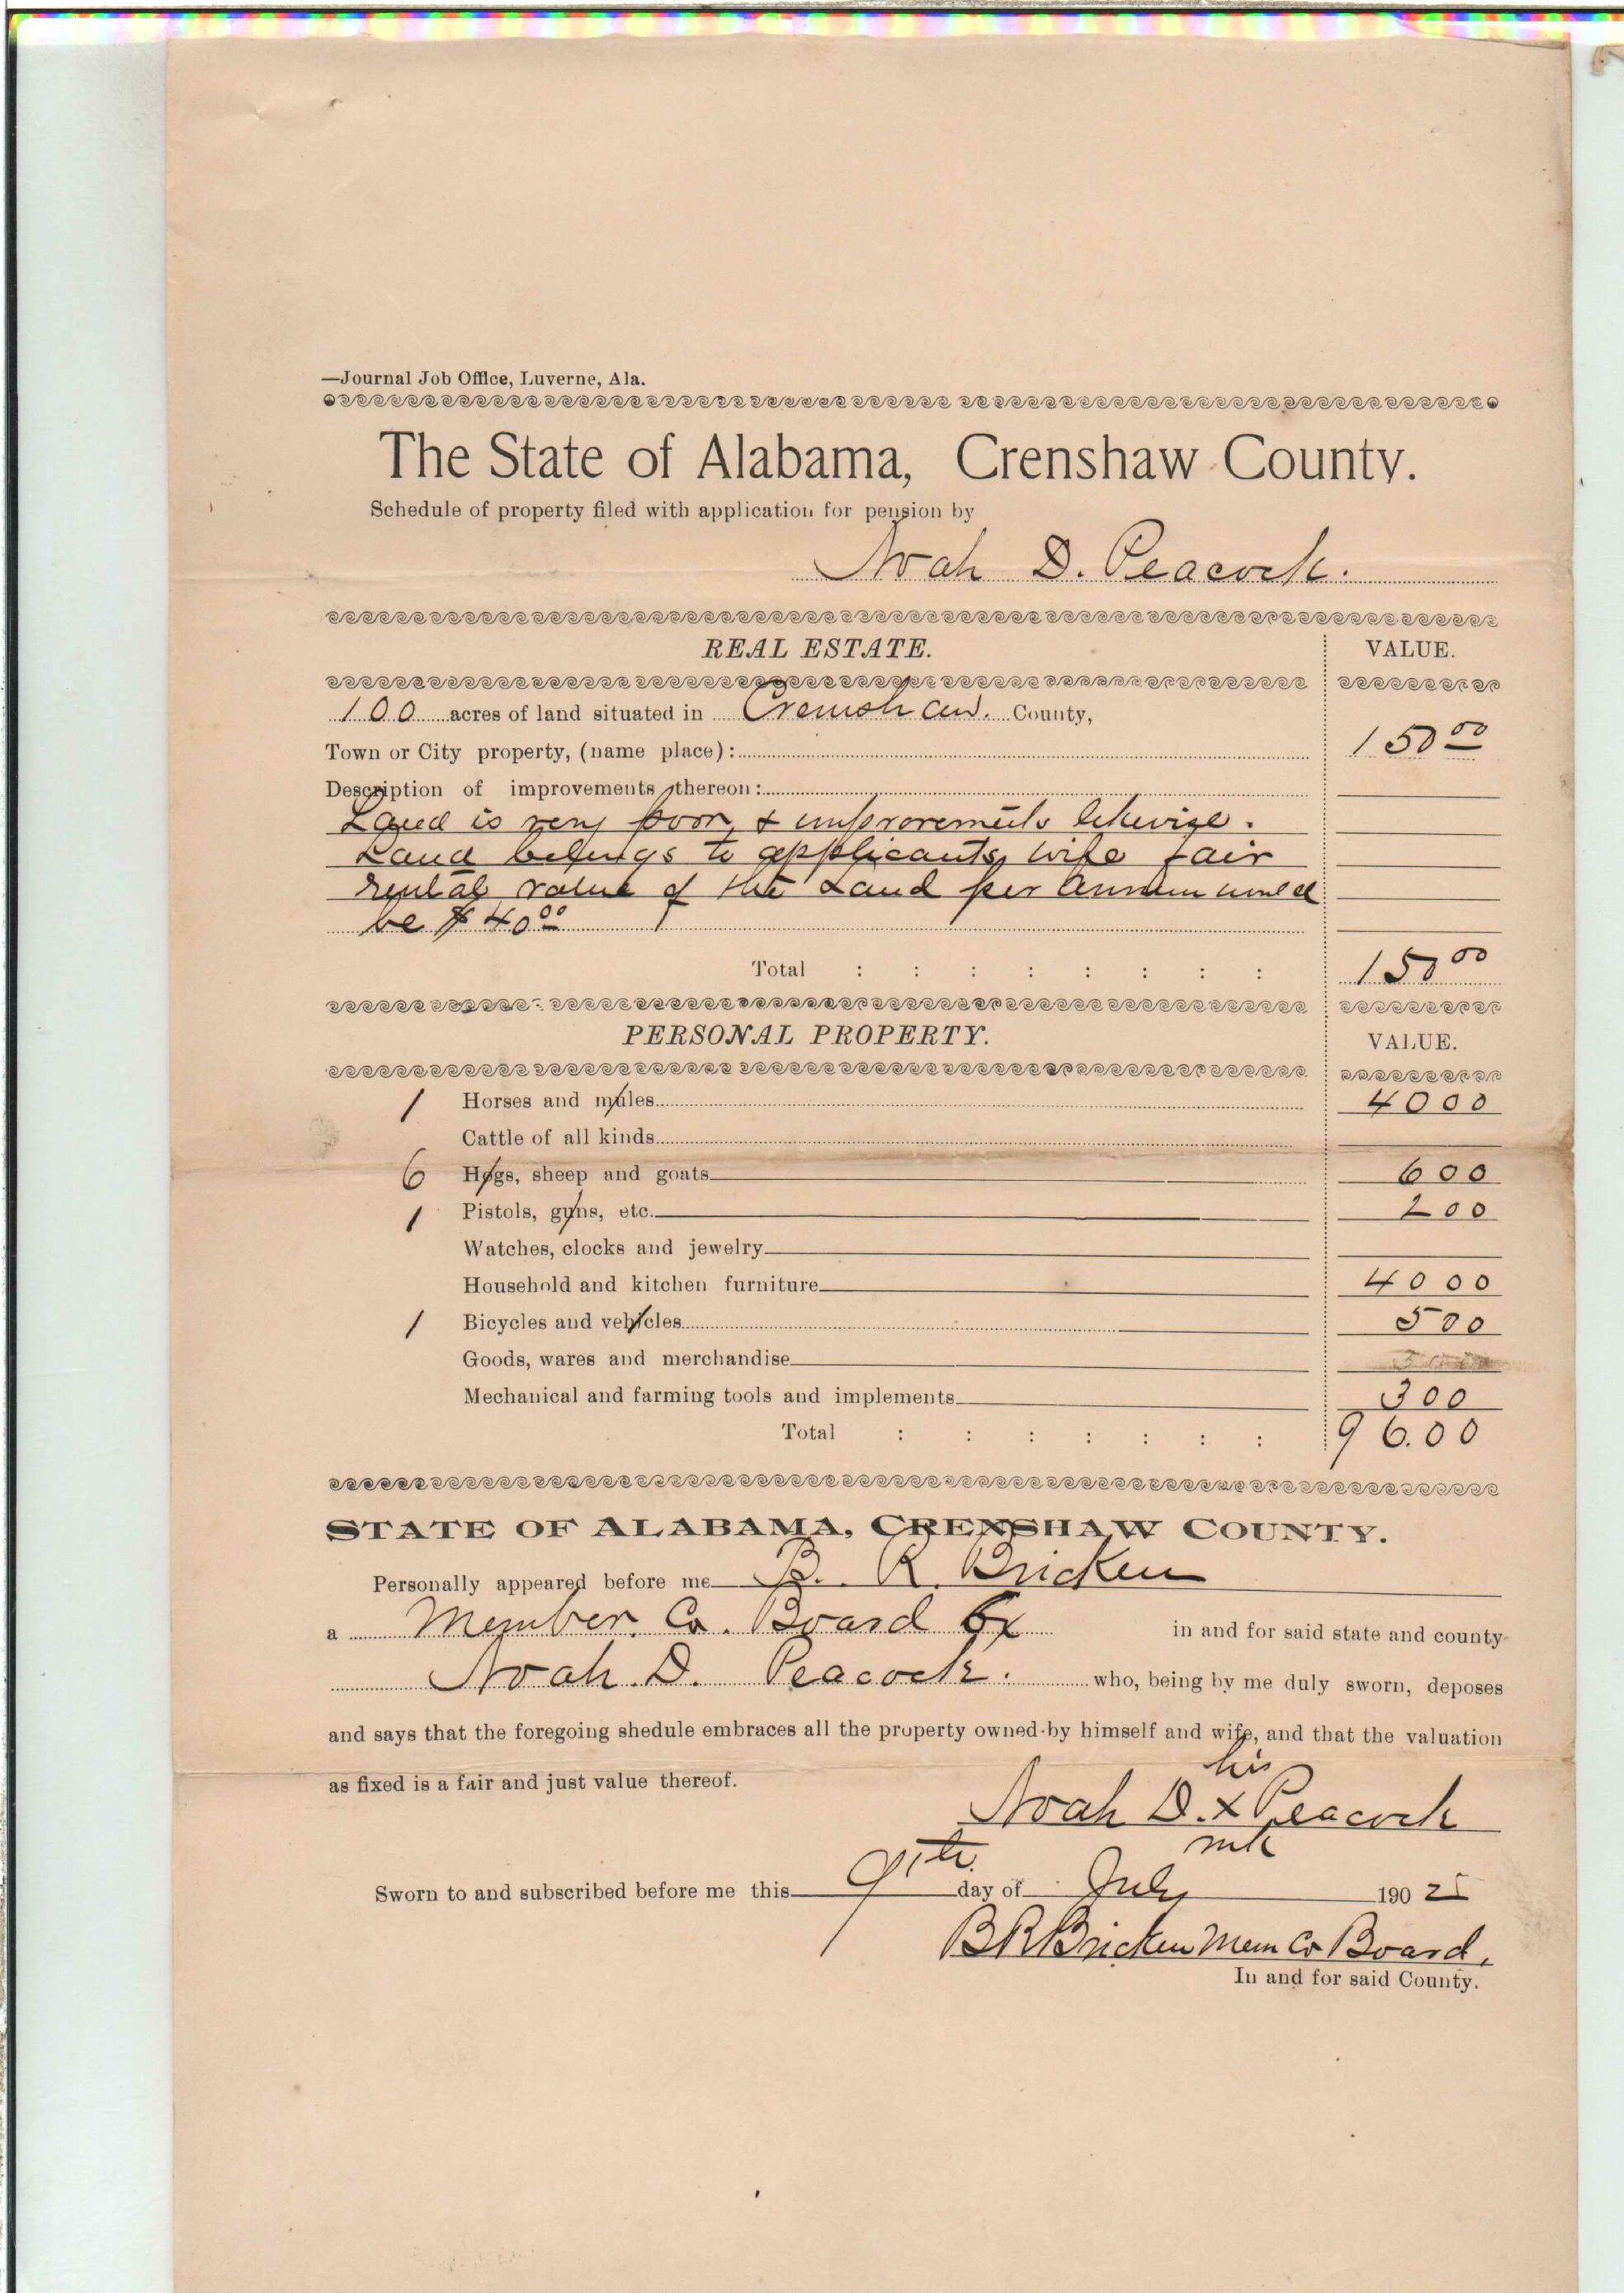 —Journal Job Office, Luverne, Ala.
The State of Alabama, Crenshaw County.
Schedule of property filed with application for pension by
Noah D. Peacock.
REAL ESTATE. VALUE.
100 acres of land situated in Crenshaw. County,
Town or City property, (name place): 150 00
Description of improvements thereon:
Land is very poor, & improvements likewise.
Land belongs to applicants wife fair
rental value of the Land per annum would
be $40 00
Total : : : : : : : : 150 00
PERSONAL PROPERTY. VALUE.
1 Horses and mules 40 00
Cattle of all kinds
6 Hogs, sheep and goats 6 00
1 Pistols, guns, etc. 2 00
Watches, clocks and jewelry
Household and kitchen furniture 40 00
1 Bicycles and vehicles 5 00
Goods, wares and merchandise
Mechanical and farming tools and implements 3 00
Total : : : : : : : 96.00
STATE OF ALABAMA, CRENSHAW COUNTY.
Personally appeared before me B. R. Bricken
a Member Co. Board Ex in and for said state and county
Noah. D. Peacock. who, being by me duly sworn, deposes
and says that the foregoing shedule embraces all the property owned by himself and wife, and that the valuation
as fixed is a fair and just value thereof.
his
Noah D. x Peacock
mk
Sworn to and subscribed before me this 9th day of July 190
BRBricken Mem Co Board,
In and for said County.